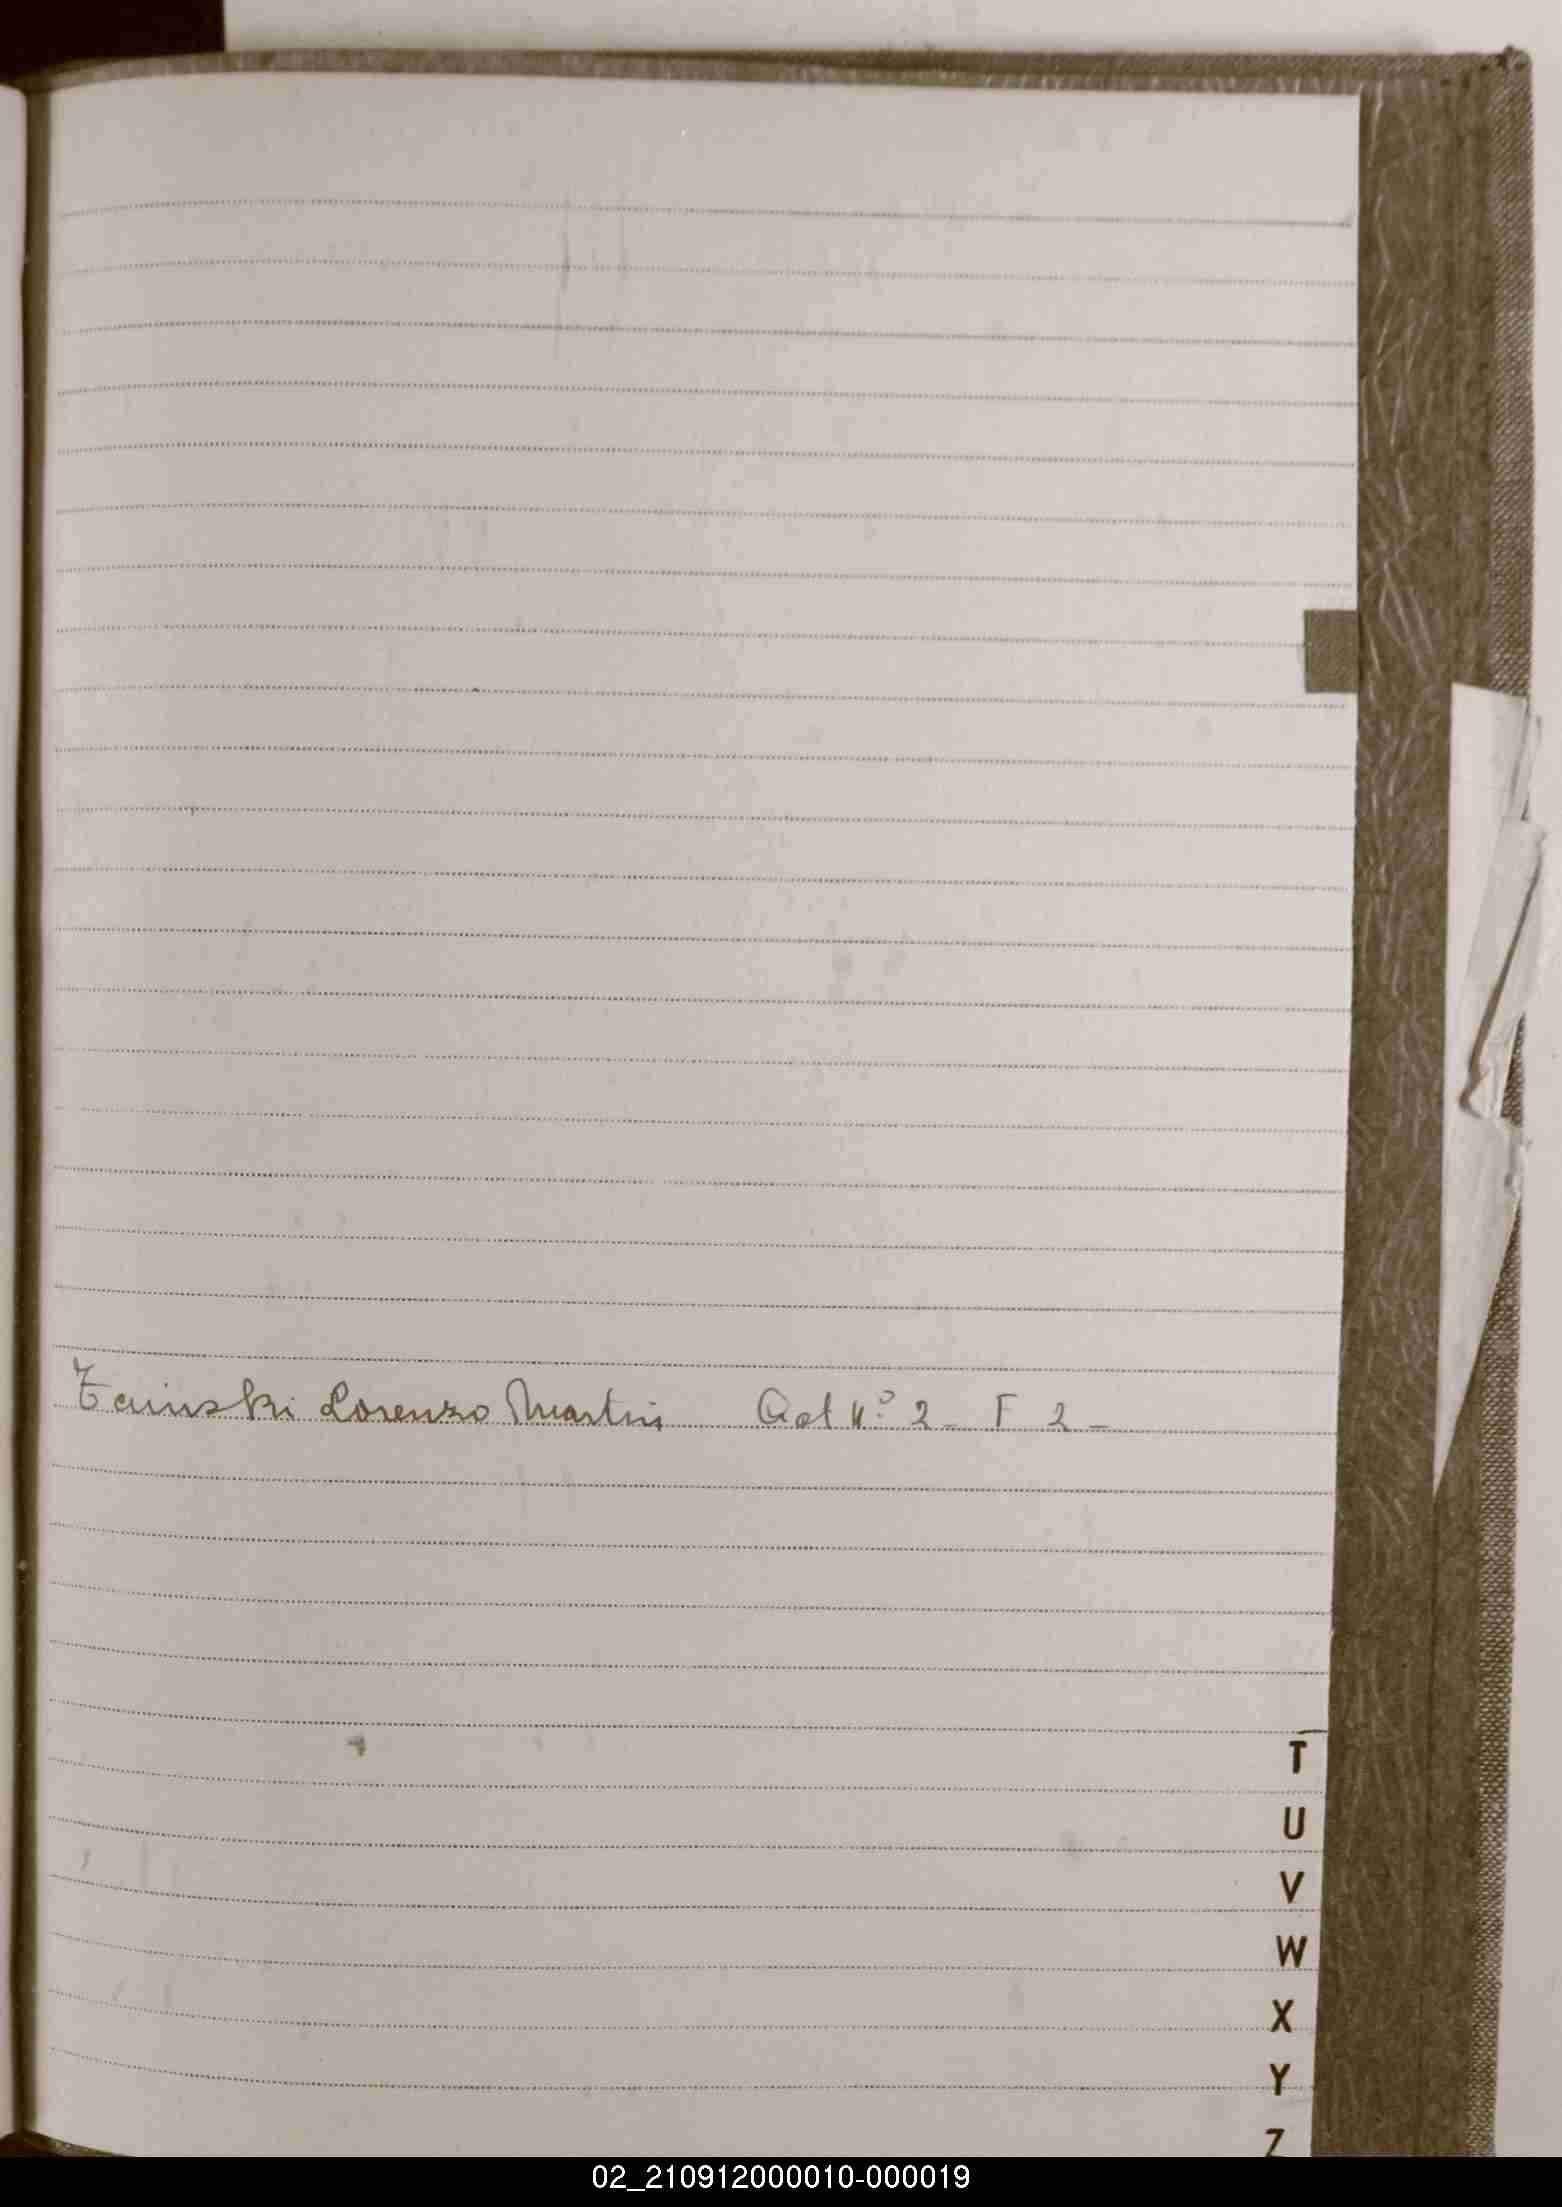 Tainski Lorenzo Martin Act Nº 2 - F 2 -
T
U
V
W
X
Y
Z
02_210912000010-000019